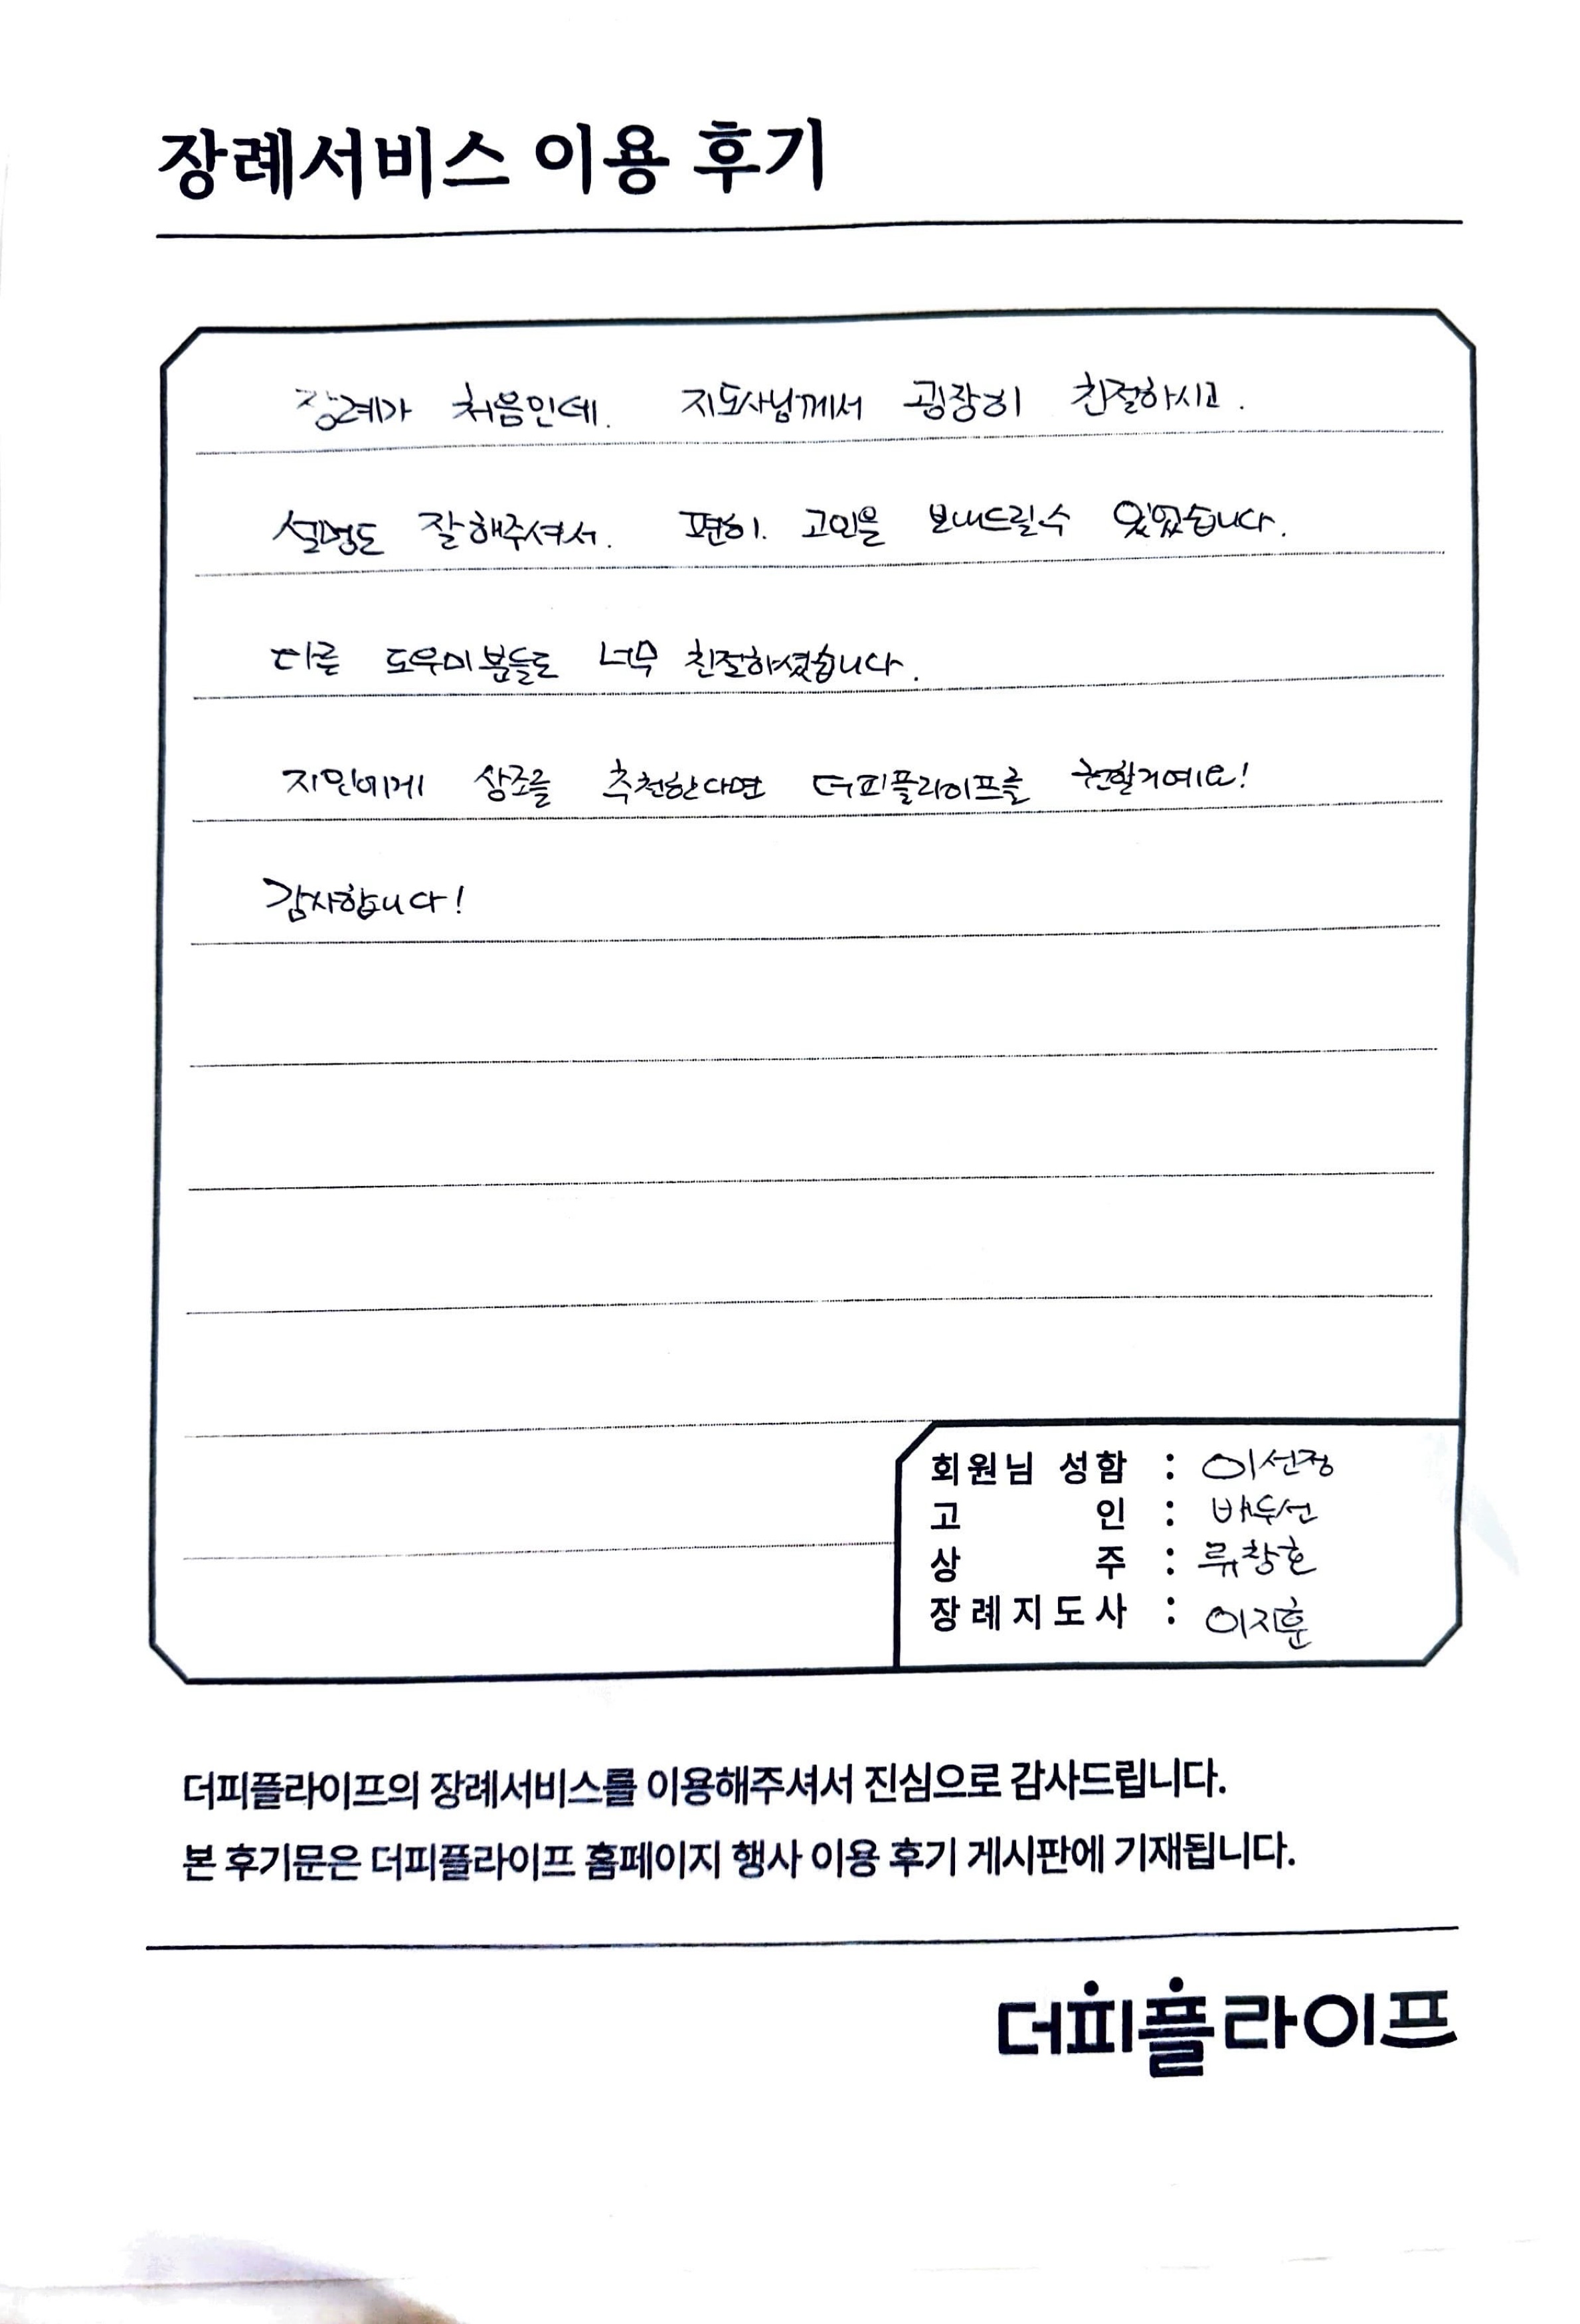 장례서비스 이용 후기
장례가 처음인데. 지도사님께서 굉장히 친절하시고.
설명도 잘해주셔서. 편히. 고인을 보내드릴수 있었습니다.
다른 도우미분들도 너무 친절하셨습니다.
지인에게 상조를 추천한다면 더피플라이프를 권할거예요!
감사합니다!
회원님 성함 : 이선정
고 인 : 배두선
상 주 : 류창호
장례지도사 : 이지훈
더피플라이프의 장례서비스를 이용해주셔서 진심으로 감사드립니다.
본 후기문은 더피플라이프 홈페이지 행사 이용 후기 게시판에 기재됩니다.
더피플라이프